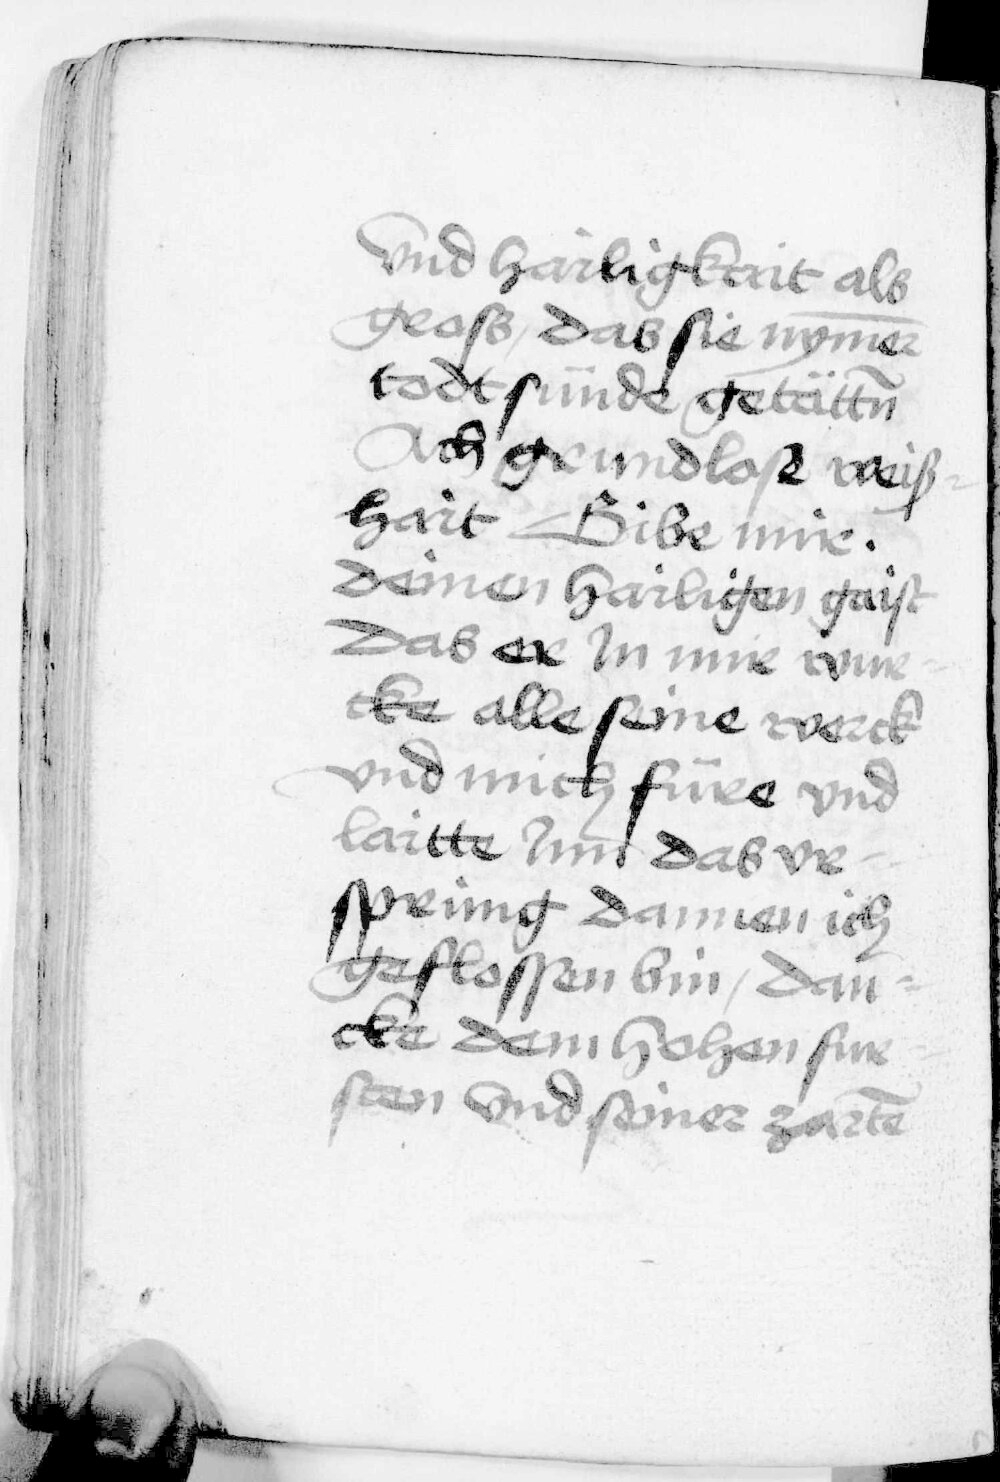 Vnd hailigkait als
gross / das sie nymer
todtsünde getättñ
Ach grundlose weiß-
hait Gibe mir.
deinen hailigen gaist
Das er In mir wur-
cke alle seine werck
vnd mich füre vnd
laitte Inn das vr-
sprung dannen ich
geflossen bin / dan-
cke dem hohen fur-
sten Vnd seiner zartē